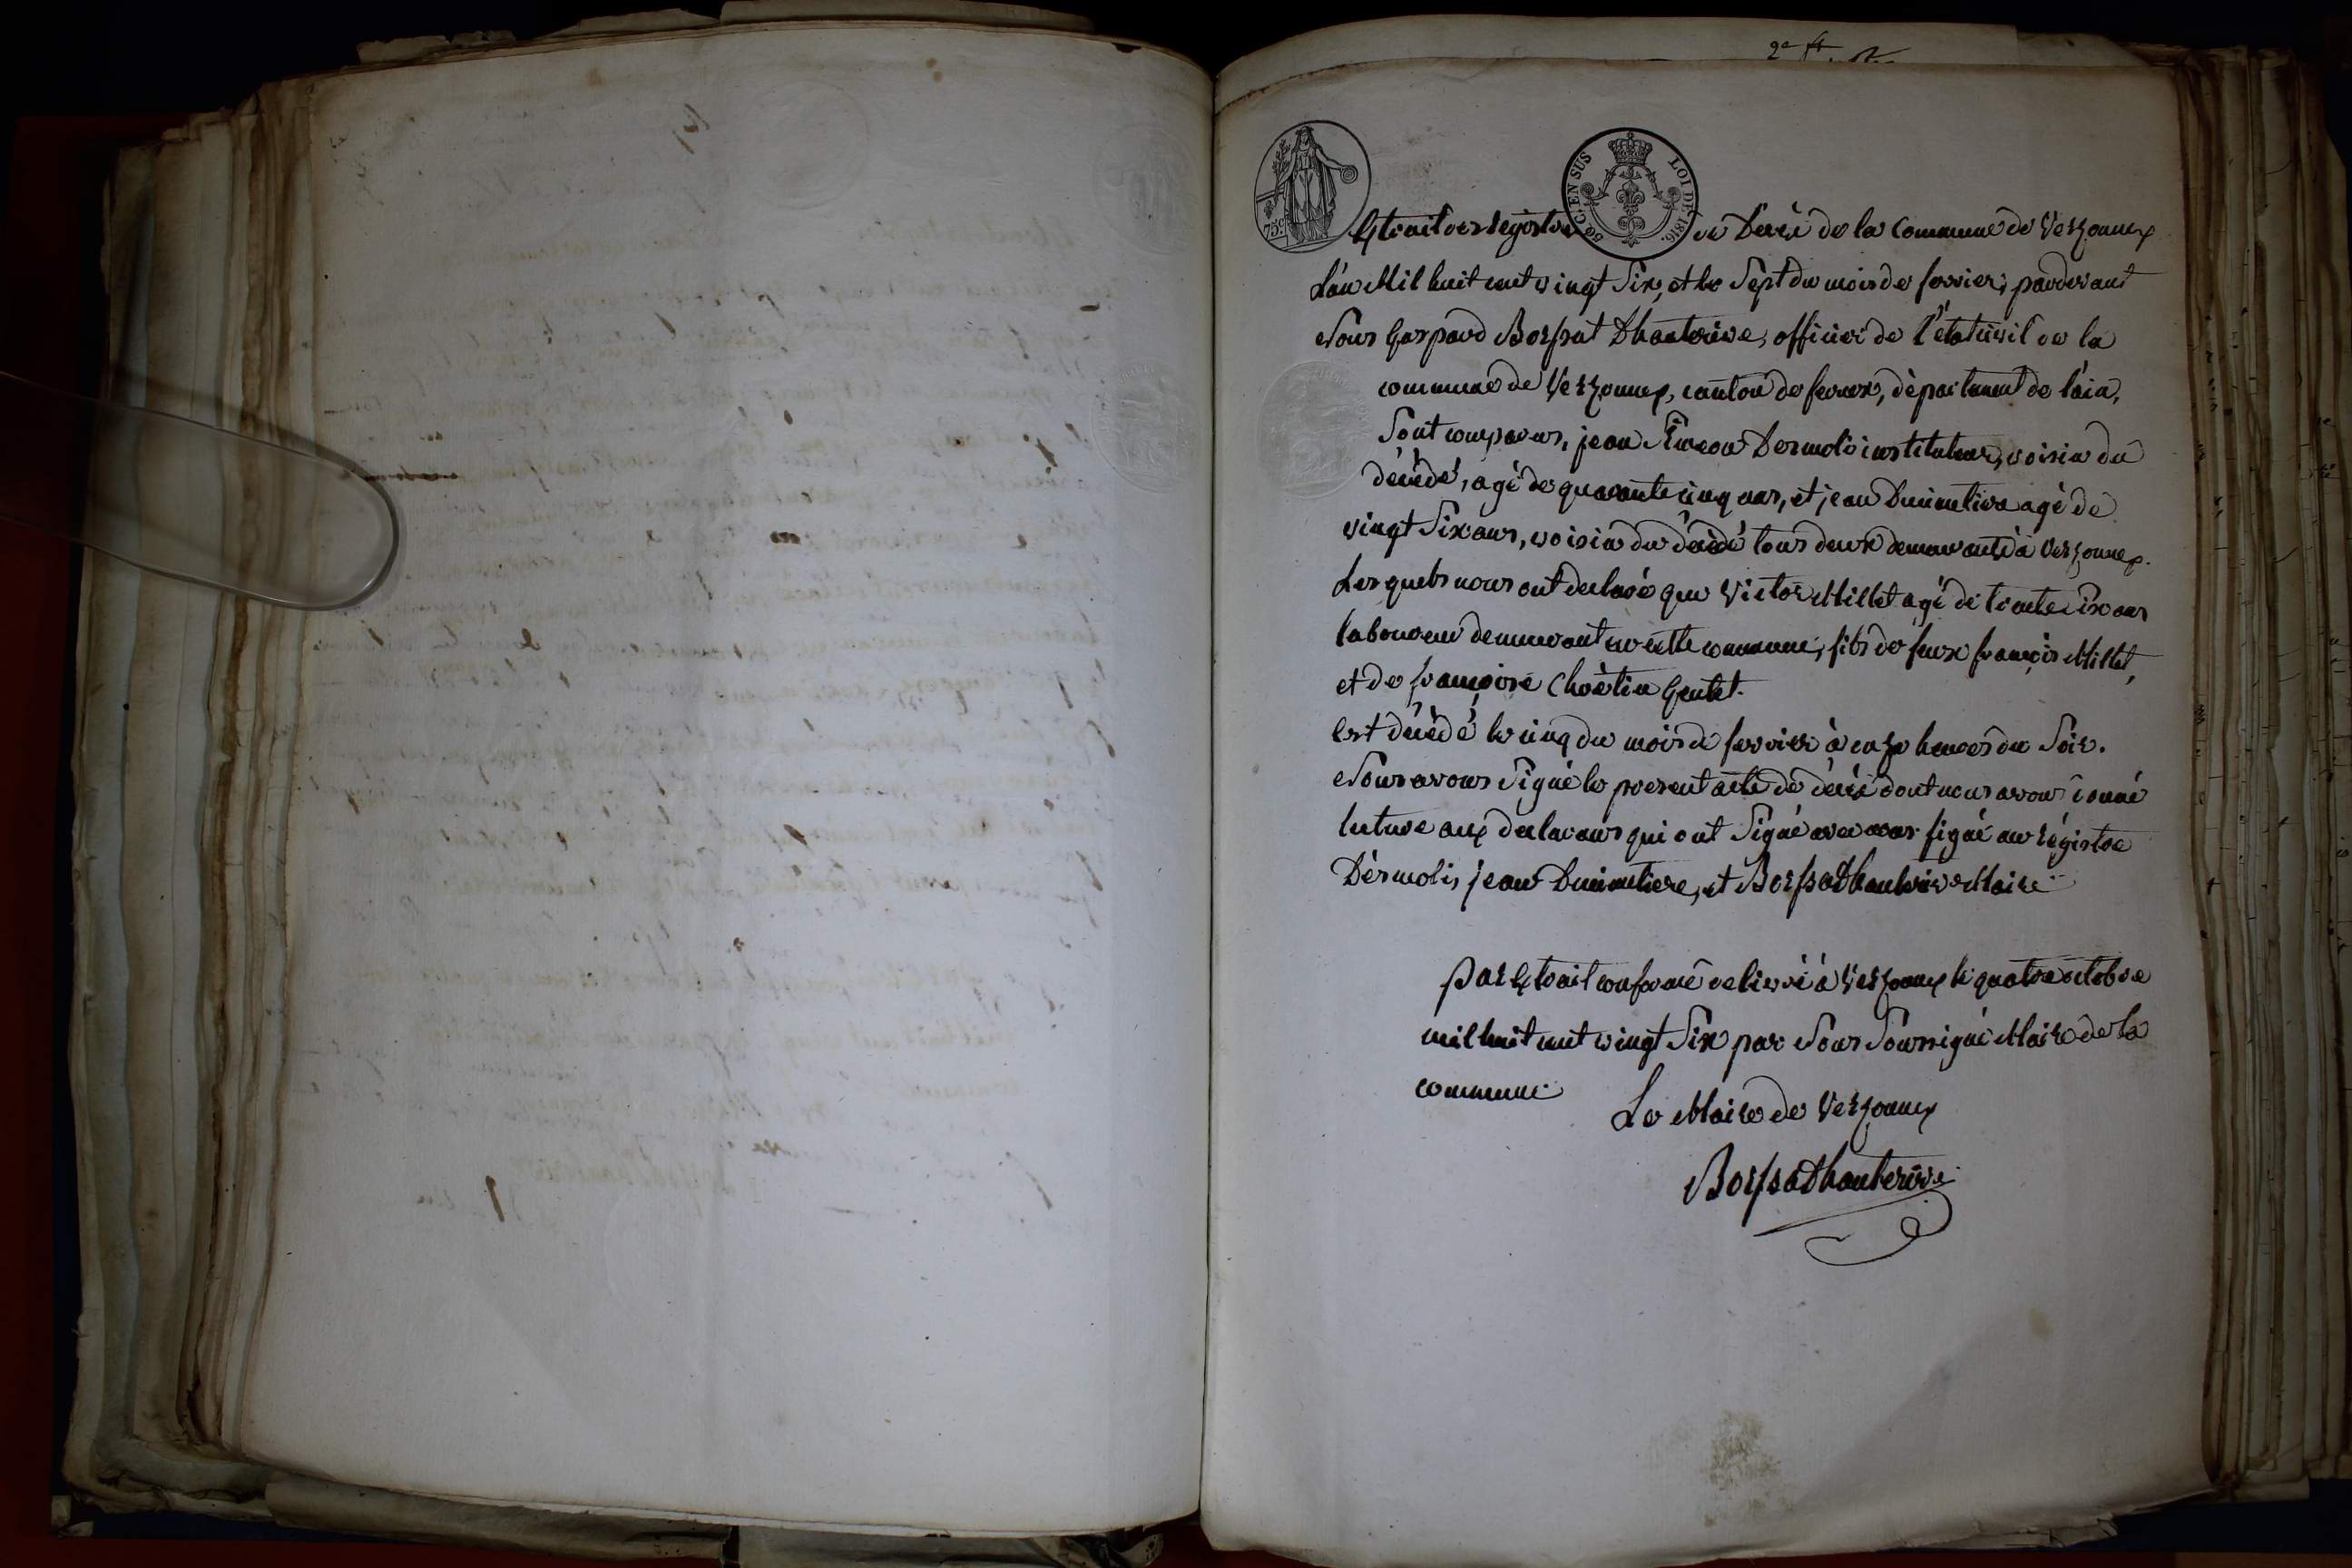 75 c.
50 C. EN SUS LOI DE 1816.
Extrait des Registres de Décè de la Commune de Versonnex
L'an Mil huit cent vingt Six, et le Sept du mois de fevrier, pardevant
Nous Gaspard Borssat Dhauterive, officier de l'état civil de la
commune de Versonnex, canton de fernex, dèpartement de l'ain,
Sont comparus, jean Simeon Dermolis instituteur, voisin du
décédé, agé de quarante cinq ans, et jean Dumentiere agé de
vingt Six ans, voisin du décédé tous deux demeurants à Versonnex.
Les quels nous ont declaré que Victor Millet agé de trente six ans
laboureur demeurant en cette commune, fils de feux françois Millet,
et de françoise Gentet.
est décédé le cinq du mois de fevrier à onze heures du Soir.
Nous avons Signé le present acte de décès dont nous avons donné
lecture aux declarans qui ont Signé avec nous signé au régistre
Dèrmolis, jean Dumentiere, et Borssat Dhauterive Maire
par Extrait conforme delivré à Versonnex le quatre octobre
mil huit cent vingt Six par Nous Soussigné Maire de la
commune
Le Maire de Versonnex
Borssat Dhauterive